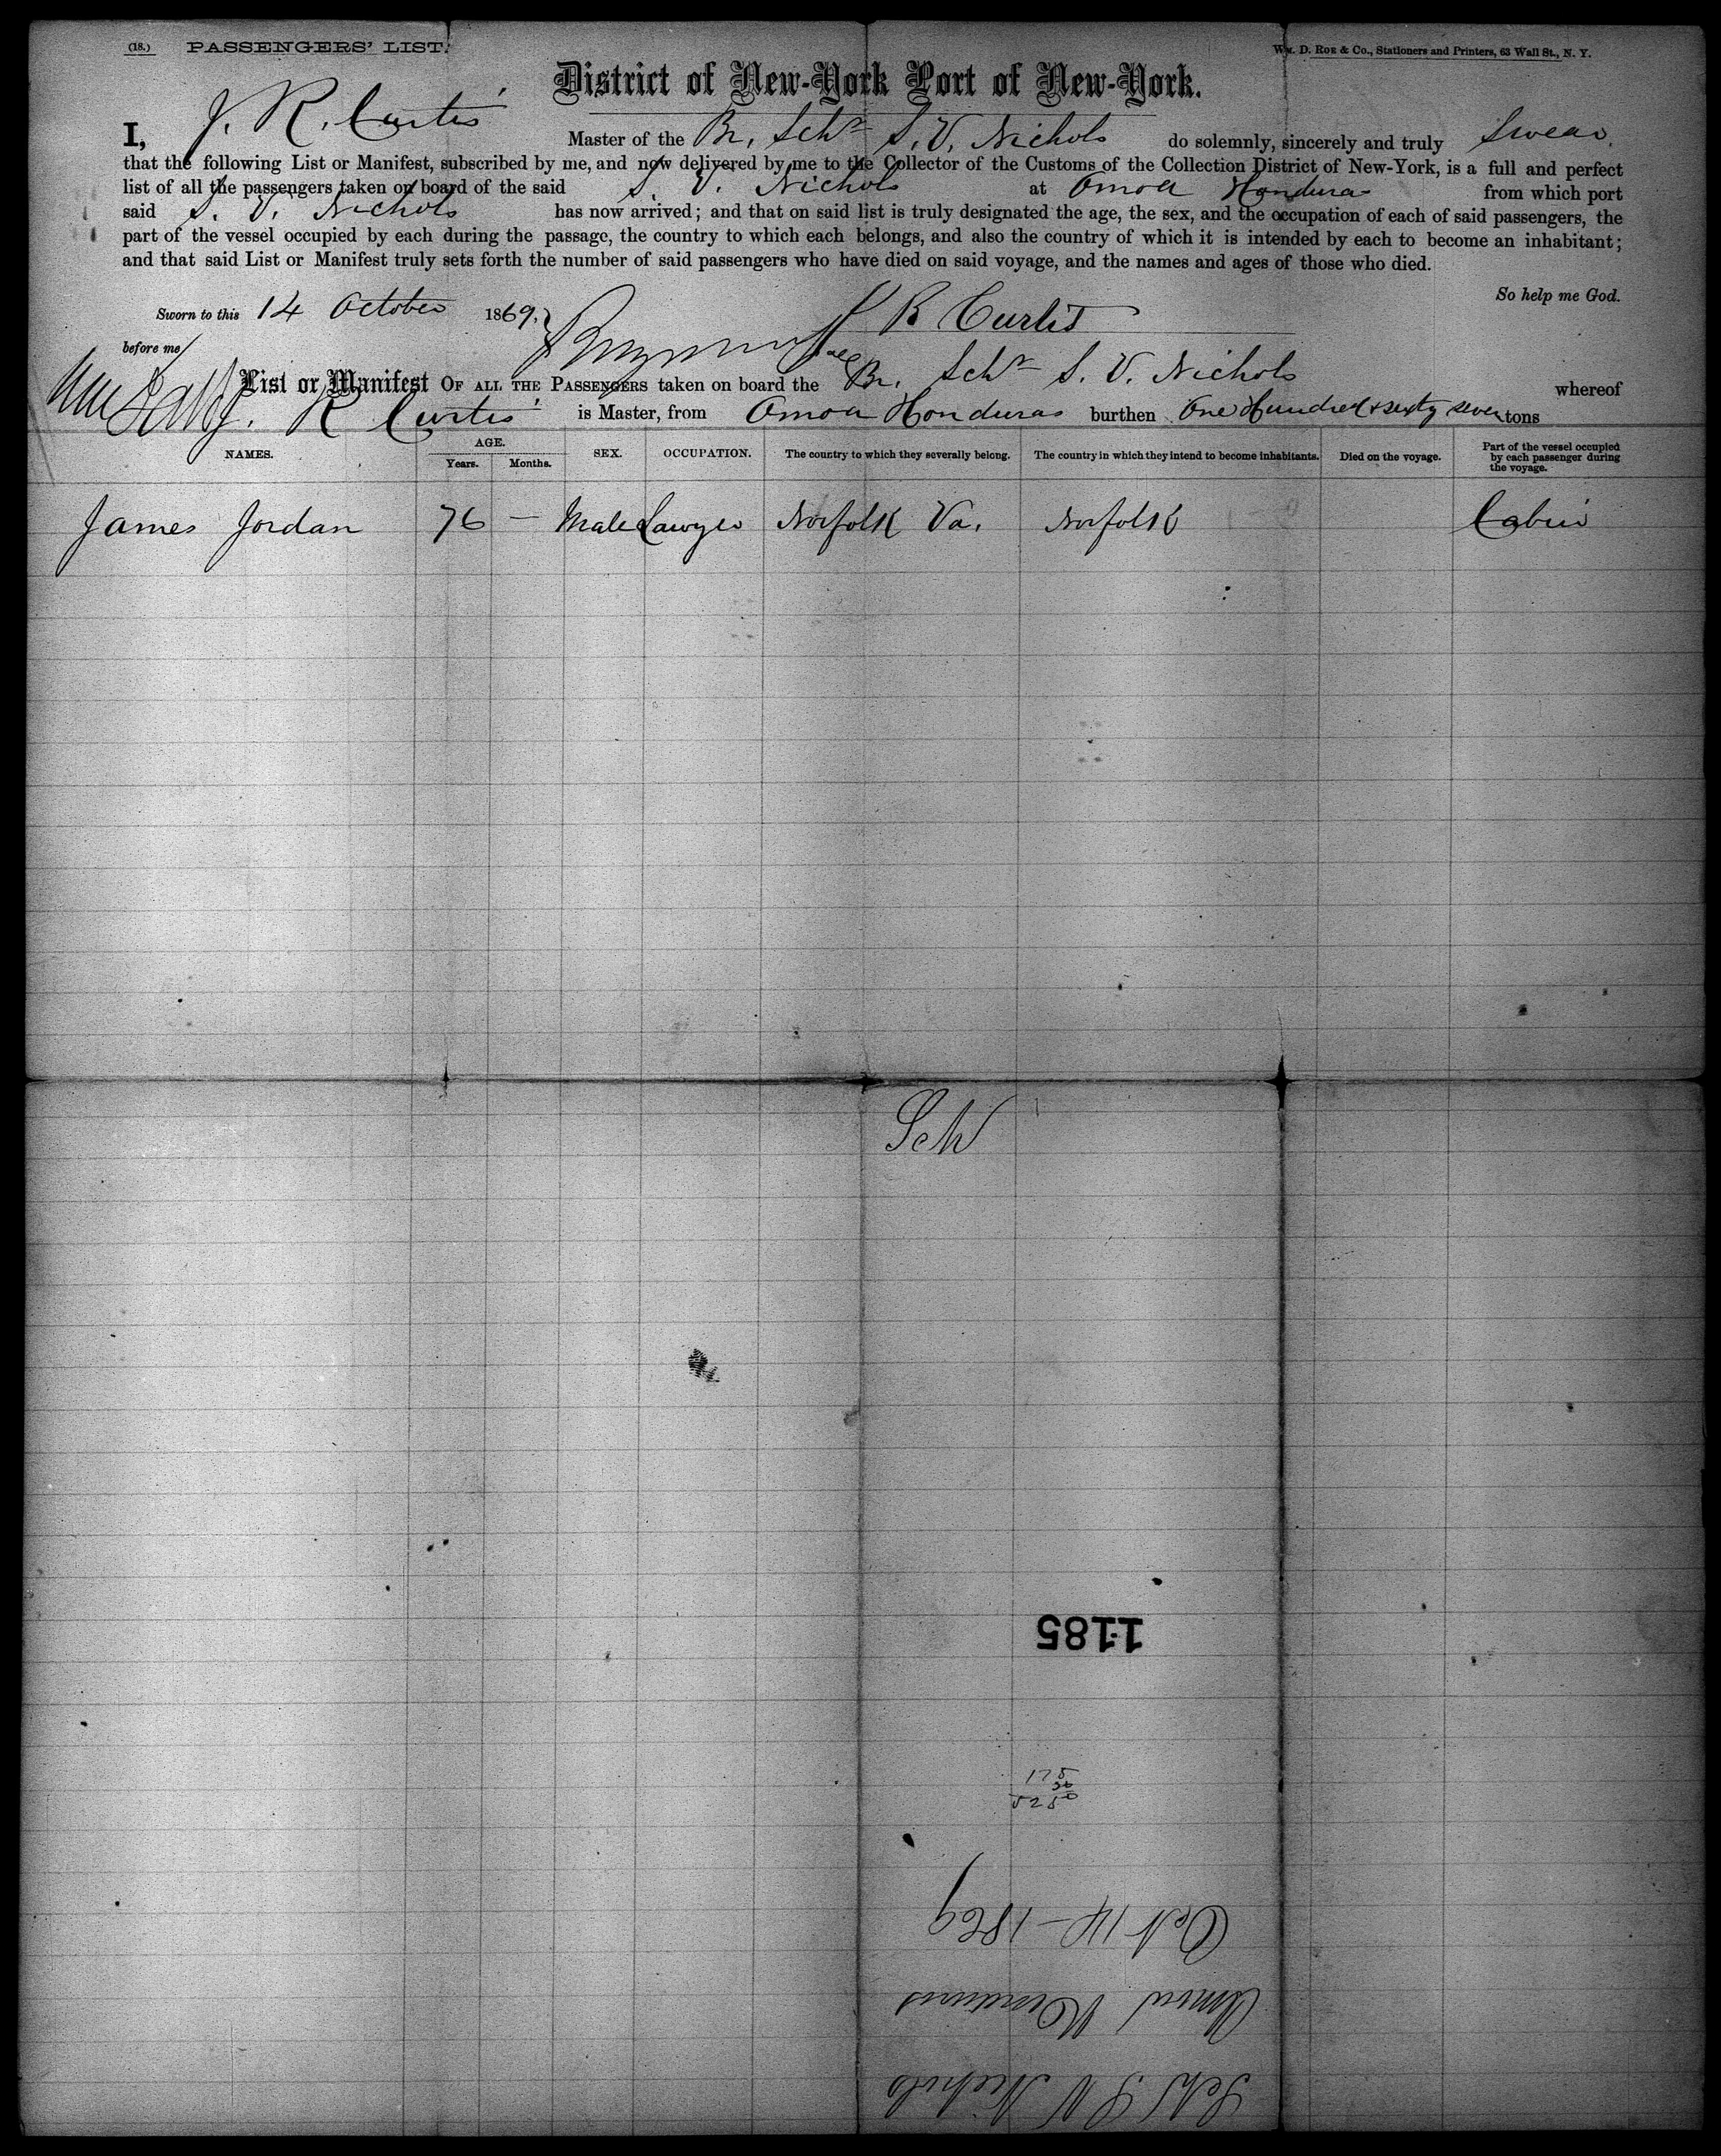 (18.) PASSENGERS' LIST. Wm. D. Roe & Co., Stationers and Printers, 63 Wall St., N. Y.
District of New-York Port of New-York.
I, J. R. Curtis Master of the Br. Schr S. V. Nichols do solemnly, sincerely and truly Swear
that the following List or Manifest, subscribed by me, and now delivered by me to the Collector of the Customs of the Collection District of New-York, is a full and perfect
list of all the passengers taken on board of the said S. V. Nichols at Omoa Honduras from which port
said S. V. Nichols has now arrived; and that on said list is truly designated the age, the sex, and the occupation of each of said passengers, the
part of the vessel occupied by each during the passage, the country to which each belongs, and also the country of which it is intended by each to become an inhabitant;
and that said List or Manifest truly sets forth the number of said passengers who have died on said voyage, and the names and ages of those who died.
So help me God.
Sworn to this 14 October 1869. J R Curtis
before me
List or Manifest OF ALL THE PASSENGERS taken on board the Br. Schr S. V. Nichols whereof
J. R Curtis is Master, from Omoa Honduras burthen One Hundred & sixty seven tons
NAMES. AGE. Years. Months. SEX. OCCUPATION. The country to which they severally belong. The country in which they intend to become inhabitants. Died on the voyage. Part of the vessel occupied by each passenger during the voyage.
James Jordan 76 — Male Lawyer Norfolk Va. Norfolk Cabin
Sch
1185
175
30
5250
Oct 14 - 1869
Omoa Honduras
Sch S V Nichols